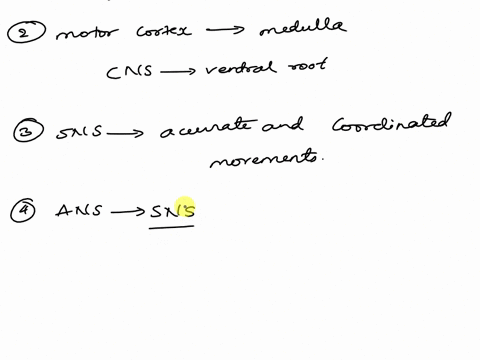 ② motor cortex → medulla
CNS → ventral root
③ SNS → accurate and coordinated
movements.
④ ANS → SNS